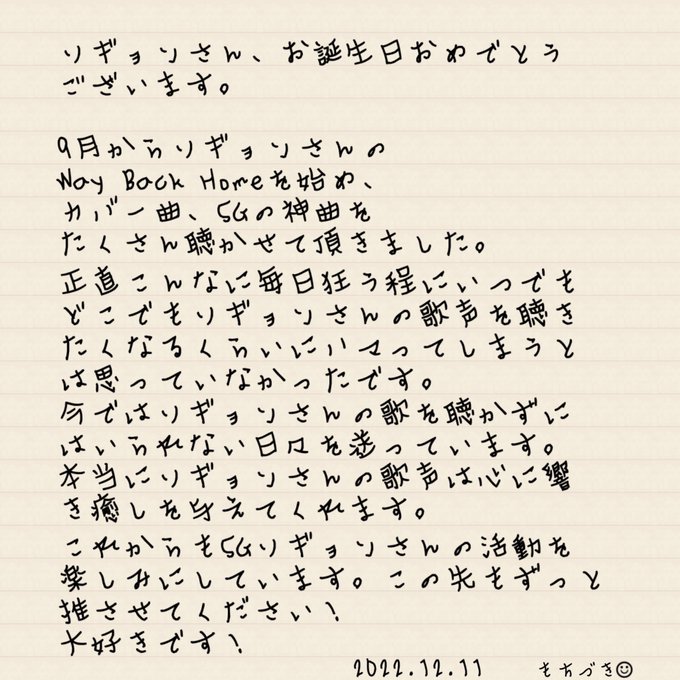 リギョンさん、お誕生日おめでとう
ございます。
9月からリギョンさんの
Way Back Homeを始め、
カバー曲、5Gの神曲を
たくさん聴かせて頂きました。
正直こんなに毎日狂う程にいつでも
どこでもリギョンさんの歌声を聴き
たくなるくらいにハマってしまうと
は思っていなかったです。
今ではリギョンさんの歌を聴かずに
はいられない日々を送っています。
本当にリギョンさんの歌声は心に響
き癒しを与えてくれます。
これからも5Gリギョンさんの活動を
楽しみにしています。この先もずっと
推させてください!
大好きです!
2022.12.11 もちづき☺